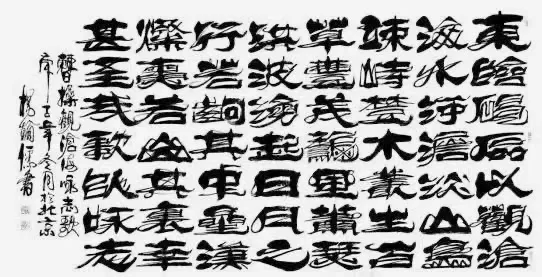 東臨碣石以觀滄
海水何澹澹山島
竦峙樹木叢生百
草豐茂秋風蕭瑟
洪波湧起日月之
行若出其中星漢
燦爛若出其裏幸
甚至哉歌以詠志
曹操觀滄海詠志歌
年冬月於北京
楊儒書